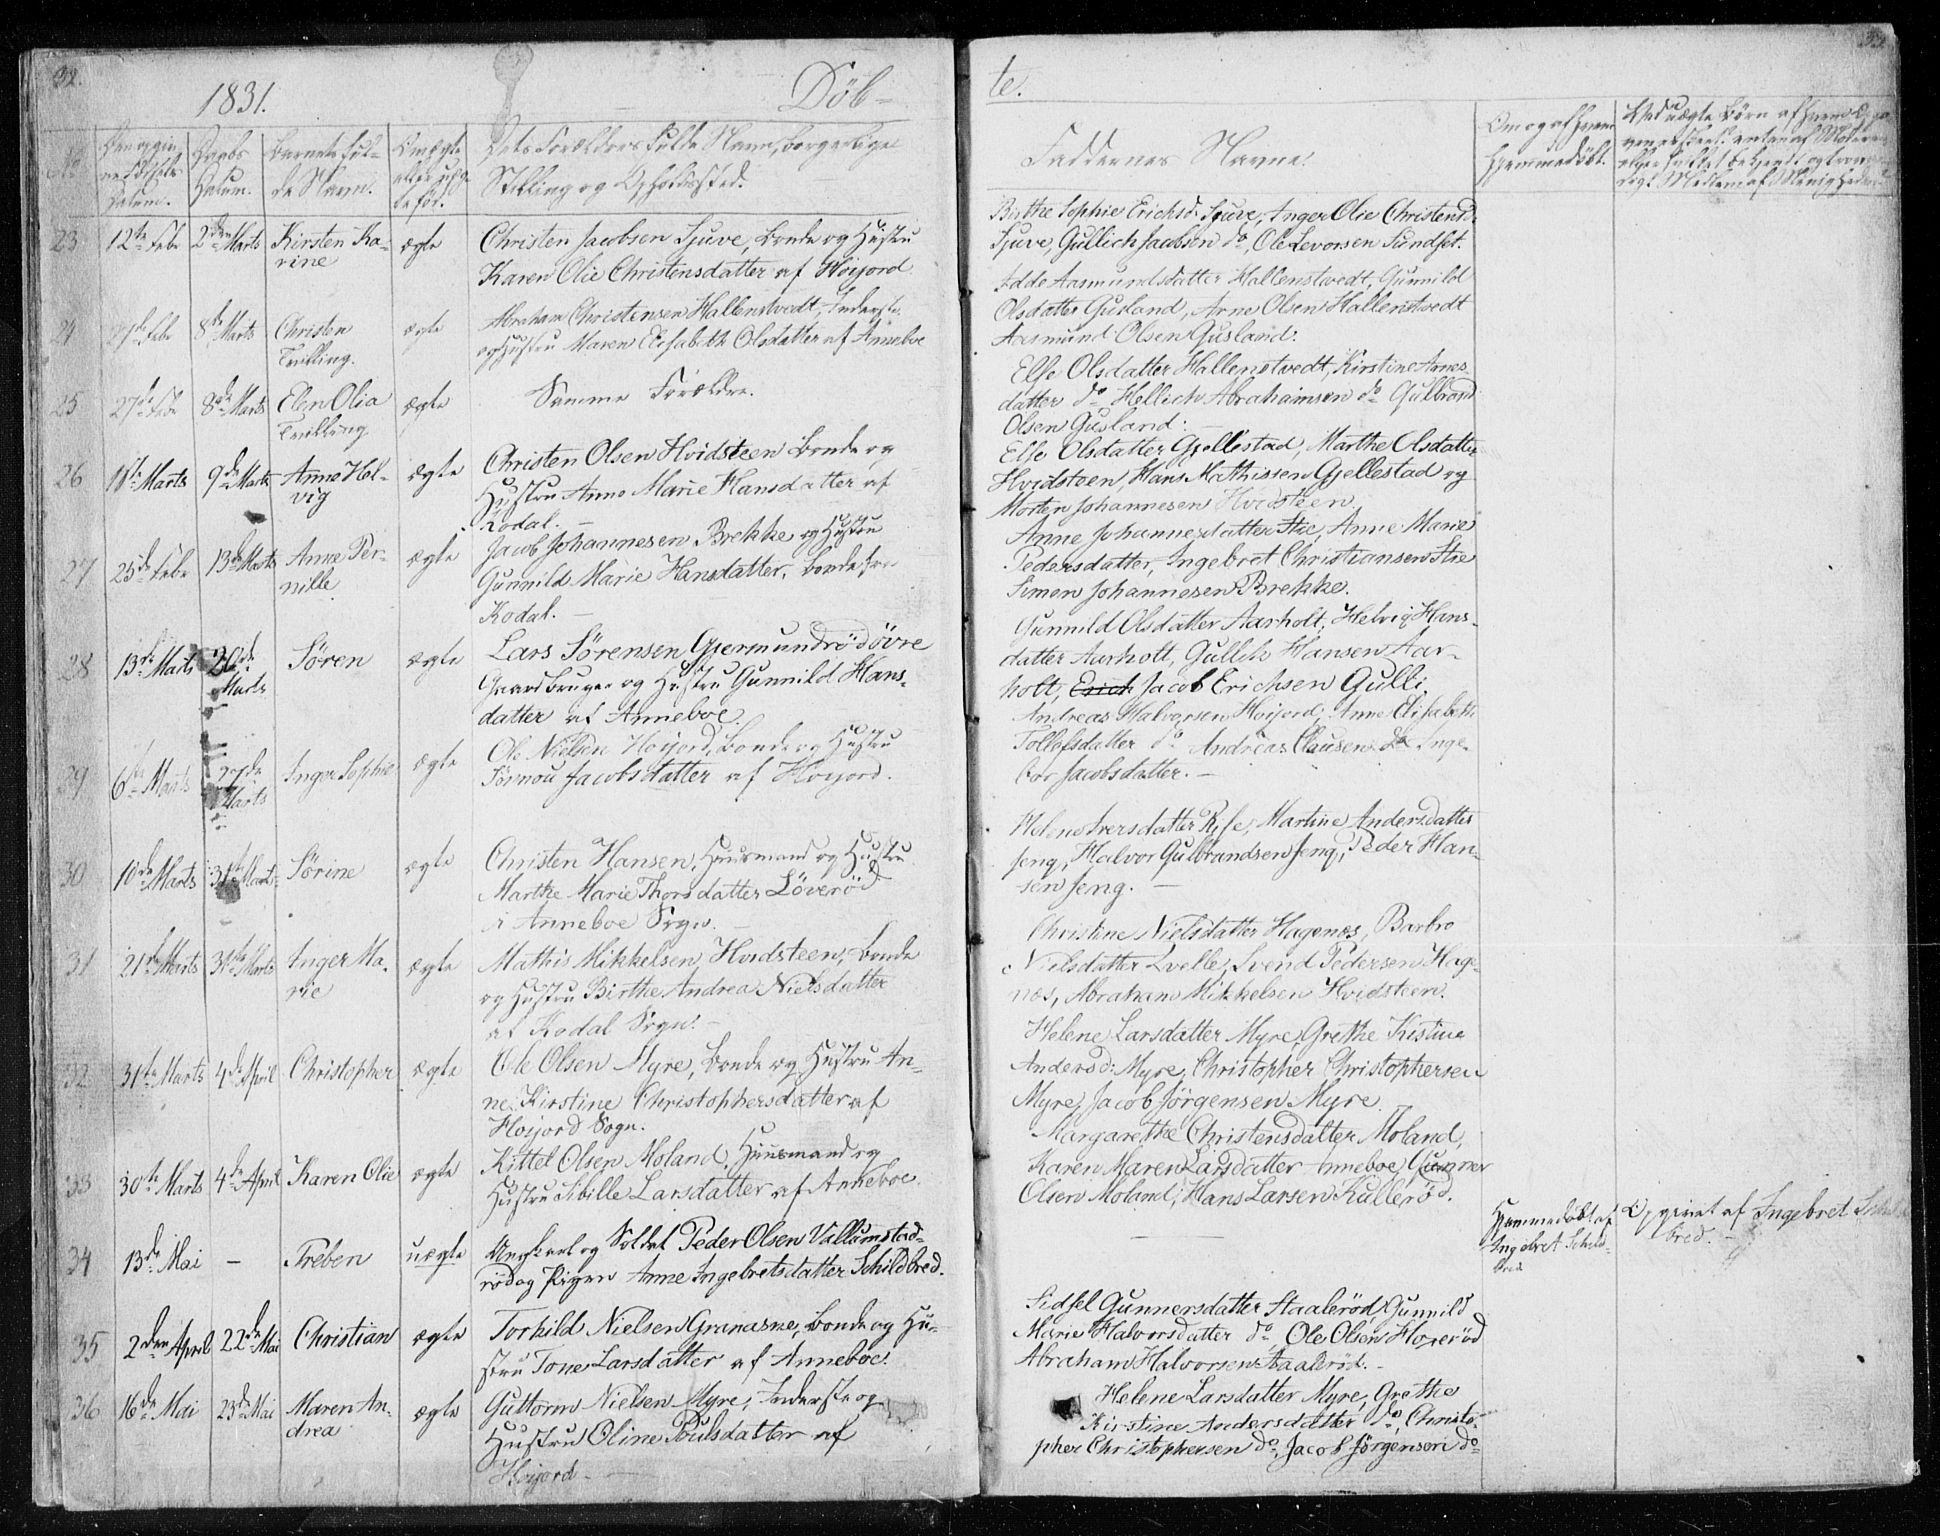 32.
1831.
Døb-
No
Den opgivne Fødsels Datum.
Daabs Datum.
Barnets fulde Navn.
Om ægte eller uægte født.
Dets Forældres fulde Navn, borgerlige
Stilling og Opholdssted.
23 12te Febr 2den Marts Kirsten Ka-
rine
ægte
Christen Jacobsen Sjuve, Bonde og Hustru
Karen Olie Christensdatter af Høijord
24 27de Febr 8de Marts Christen
Tvilling.
ægte
Abraham Christensen Hallenstvedt, Inderste
og Hustru Maren Elisabeth Olsdatter af Anneboe
25 27de Febr 8de Marts Elen Olia
Tvilling
ægte
Samme Forældre.
26 Marts 9de Marts Anne Hel-
vig
ægte
Christen Olsen Hvidsteen Bonde og
Hustru Anne Marie Hansdatter af
Kodal. -
27 25de Febr 13de Marts Anne Per-
nille
ægte
Jacob Johannesen Brekke og Hustru
Gunnild Marie Hansdatter, Bonde
Kodal. -
28 13de Marts 20de
Marts
Søren
ægte
Lars Sørensen Gjermundrød øvre
Gaardbruger og Hustru Gunnild Hans-
datter af Anneboe.
29 6te Marts 27de
Marts
Inger Sophie
ægte
Ole Nielsen Hoijord, Bonde og Hustru
Jacobsdatter af Høijord.
30 10de Marts 31te Marts Sørine
ægte
Christen Hansen, Huusmand og Hustru
Marthe Marie Thorsdatter Løverød
i Anneboe Sogn. -
31 21de Marts 31te Marts Inger Ma-
rie
ægte
Mathis Mikkelsen Hvidsteen, Bonde
og Hustru Birthe Andrea Nielsdatter
af Kodal Sogn. -
32 31te Marts 4de April Christopher
ægte
Ole Olsen Myre, Bonde og Hustru An-
ne Kirstine Christophersdatter af
Hoijord Sogn.
33 30te Marts 4de April Karen Olie
ægte
Kittel Olsen Moland, Huusmand og
Hustru Sibille Larsdatter af Anneboe
34 13de Mai - Preben
uægte
Ungkarl og Soldat Peder Olsen Vallumstad-
rød og Pigen Anne Ingebretsdatter Schildbred.
35 2den April 22de Mai Christian
ægte
Torkild Nielsen Granasne, Bonde og Hu-
stru Tone Larsdatter af Anneboe.
36 16de Mai 23de Mai Maren An-
drea
ægte
Guttorm Nielsen Myre, Inderste og
Hustru Oline Poulsdatter af
Høijord -
te.
33
Faddernes Navne.
Om og af hvem
hjemmedøbt.
Birthe Sophie Erichsd. Sjuve, Inger Olie Christensd.
Sjuve, Gullich Jacobsen do, Ole Levorsen Sundset.
Edde Aasmundsdatter Hallenstvedt, Gunnild
Olsdatter Gusland, Arne Olsen Hallenstvedt
Aasmund Olsen Gusland.
Else Olsdatter Hallenstvedt, Kirstine Arnes-
datter do Hellich Abrahamsen do Gulbrand
Olsen Gusland: -
Else Olsdatter Gjellestad, Marthe Olsdatter
Hvidsteen, Hans Mathissen Gjellestad og
Morten Johannesen Hvidsteen
Anne Johannesdatter Stie, Anne Marie
Pedersdatter, Ingebret Christiansen Stie
Simen Johannesen Brekke.
Gunnild Olsdatter Aarholt, Helvig Hans-
datter Aarholt, Gullik Hansen Aar-
holt, Erich Jacob Erichsen Gulli.
Andreas Halvorsen Hoijord, Anne Elisabeth
Tollefsdatter do Andreas Clausen do Inge-
bor Jacobsdatter. -
Helene Iversdatter Rise, Martine Andersdatter
Jeng, Halvor Gulbrandsen Jeng, Peder Han-
sen Jeng. -
Christine Nielsdatter Hagenæs, Barbro
Nielsdatter Lvelle, Svend Pedersen Hage-
næs, Abraham Mikkelsen Hvidsteen.
Helene Larsdatter Myre, Grethe Kistine
Andersd: Myre, Christopher Christophersen
Myre, Jacob Jørgensen Myre
Margarethe Christensdatter Moland,
Karen Maren Larsdatter Anneboe, Gunner
Olsen Moland, Hans Larsen Kullerød.
-
Hjemmedøbt af
Ingebret Schild-
bred
Opgivet af Ingebret Schild-
bred. -
Sidsel Gunnersdatter Staalerød, Gunnild
Marie Halvorsdatter do Ole Olsen Horerød
Abraham Halvorsen Staalerød. -
Helene Larsdatter Myre, Grethe
Kirstine Andersdatter do, Christo-
pher Christophersen do, Jacob Jørgensen do